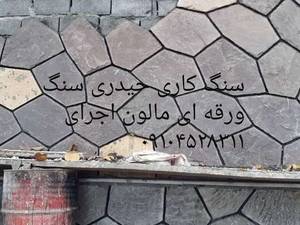 سنگ کاری حیدری سنگ
ورقه ای مالون اجرای
۰۹۱۰۴۵۲۸۳۱۱